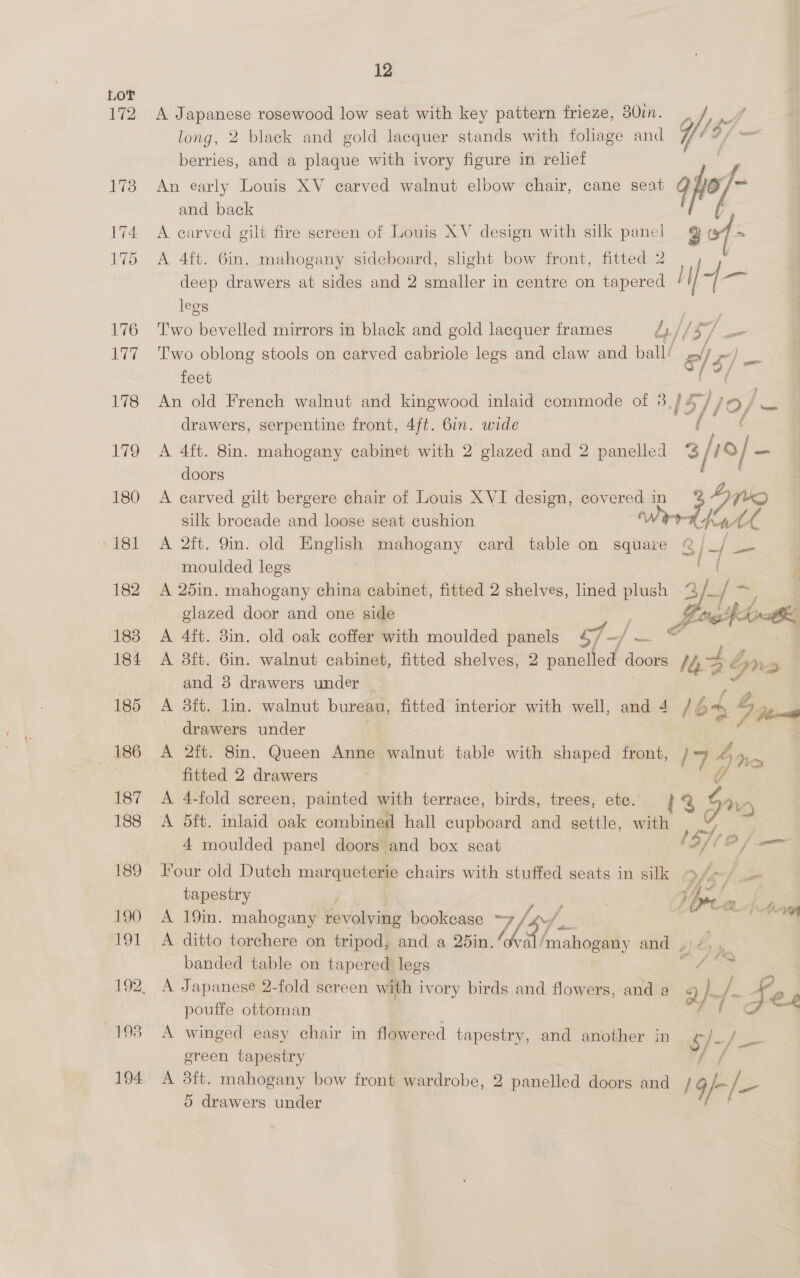 12
LOT
172 A Japanese rosewood low seat with key pattern frieze, 30in.
long, 2 black and gold lacquer stands with foliage and
berries, and a plaque with ivory figure in relief
173 An early Louis XV carved walnut elbow chair, cane seat
and back
174 A carved gilt fire screen of Louis XV design with silk panel
175 A 4ft. 6in. mahogany sideboard, slight bow front, fitted 2
deep drawers at sides and 2 smaller in centre on tapered
legs
176 Two bevelled mirrors in black and gold lacquer frames
177 Two oblong stools on carved cabriole legs and claw and ball
feet
178 An old French walnut and kingwood inlaid commode of 3 15/10/-
drawers, serpentine front, 4ft. 6in. wide
179 A 4ft. 8in. mahogany cabinet with 2 glazed and 2 panelled 3/10/-
doors
180 A carved gilt bergere chair of Louis XVI design, covered in
silk brocade and loose seat cushion
181 A 2ft. 9in. old English mahogany card table on square 2/-/-
moulded legs
182 A 25in. mahogany china cabinet, fitted 2 shelves, lined plush 3/-/-
glazed door and one side
183 A 4ft. 3in. old oak coffer with moulded panels
184 A 3ft. 6in. walnut cabinet, fitted shelves, 2 panelled doors
and 3 drawers under
185 A 3ft. 1in. walnut bureau, fitted interior with well, and 4
drawers under
186 A 2ft. 8in. Queen Anne walnut table with shaped front, 17 Gns
fitted 2 drawers
187 A 4-fold screen, painted with terrace, birds, trees, etc.
188 A 5ft. inlaid oak combined hall cupboard and settle, with
4 moulded panel doors and box seat 15/10/-
189 Four old Dutch marqueterie chairs with stuffed seats in silk
tapestry
190 A 19in. mahogany revolving bookcase
191 A ditto torchere on tripod, and a 25in. oval mahogany and
banded table on tapered legs
192, A Japanese 2-fold screen with ivory birds and flowers, and a 2/-/-
pouffe ottoman
193 A winged easy chair in flowered tapestry, and another in
green tapestry
194 A 3ft. mahogany bow front wardrobe, 2 panelled doors and 19/-/-
5 drawers under